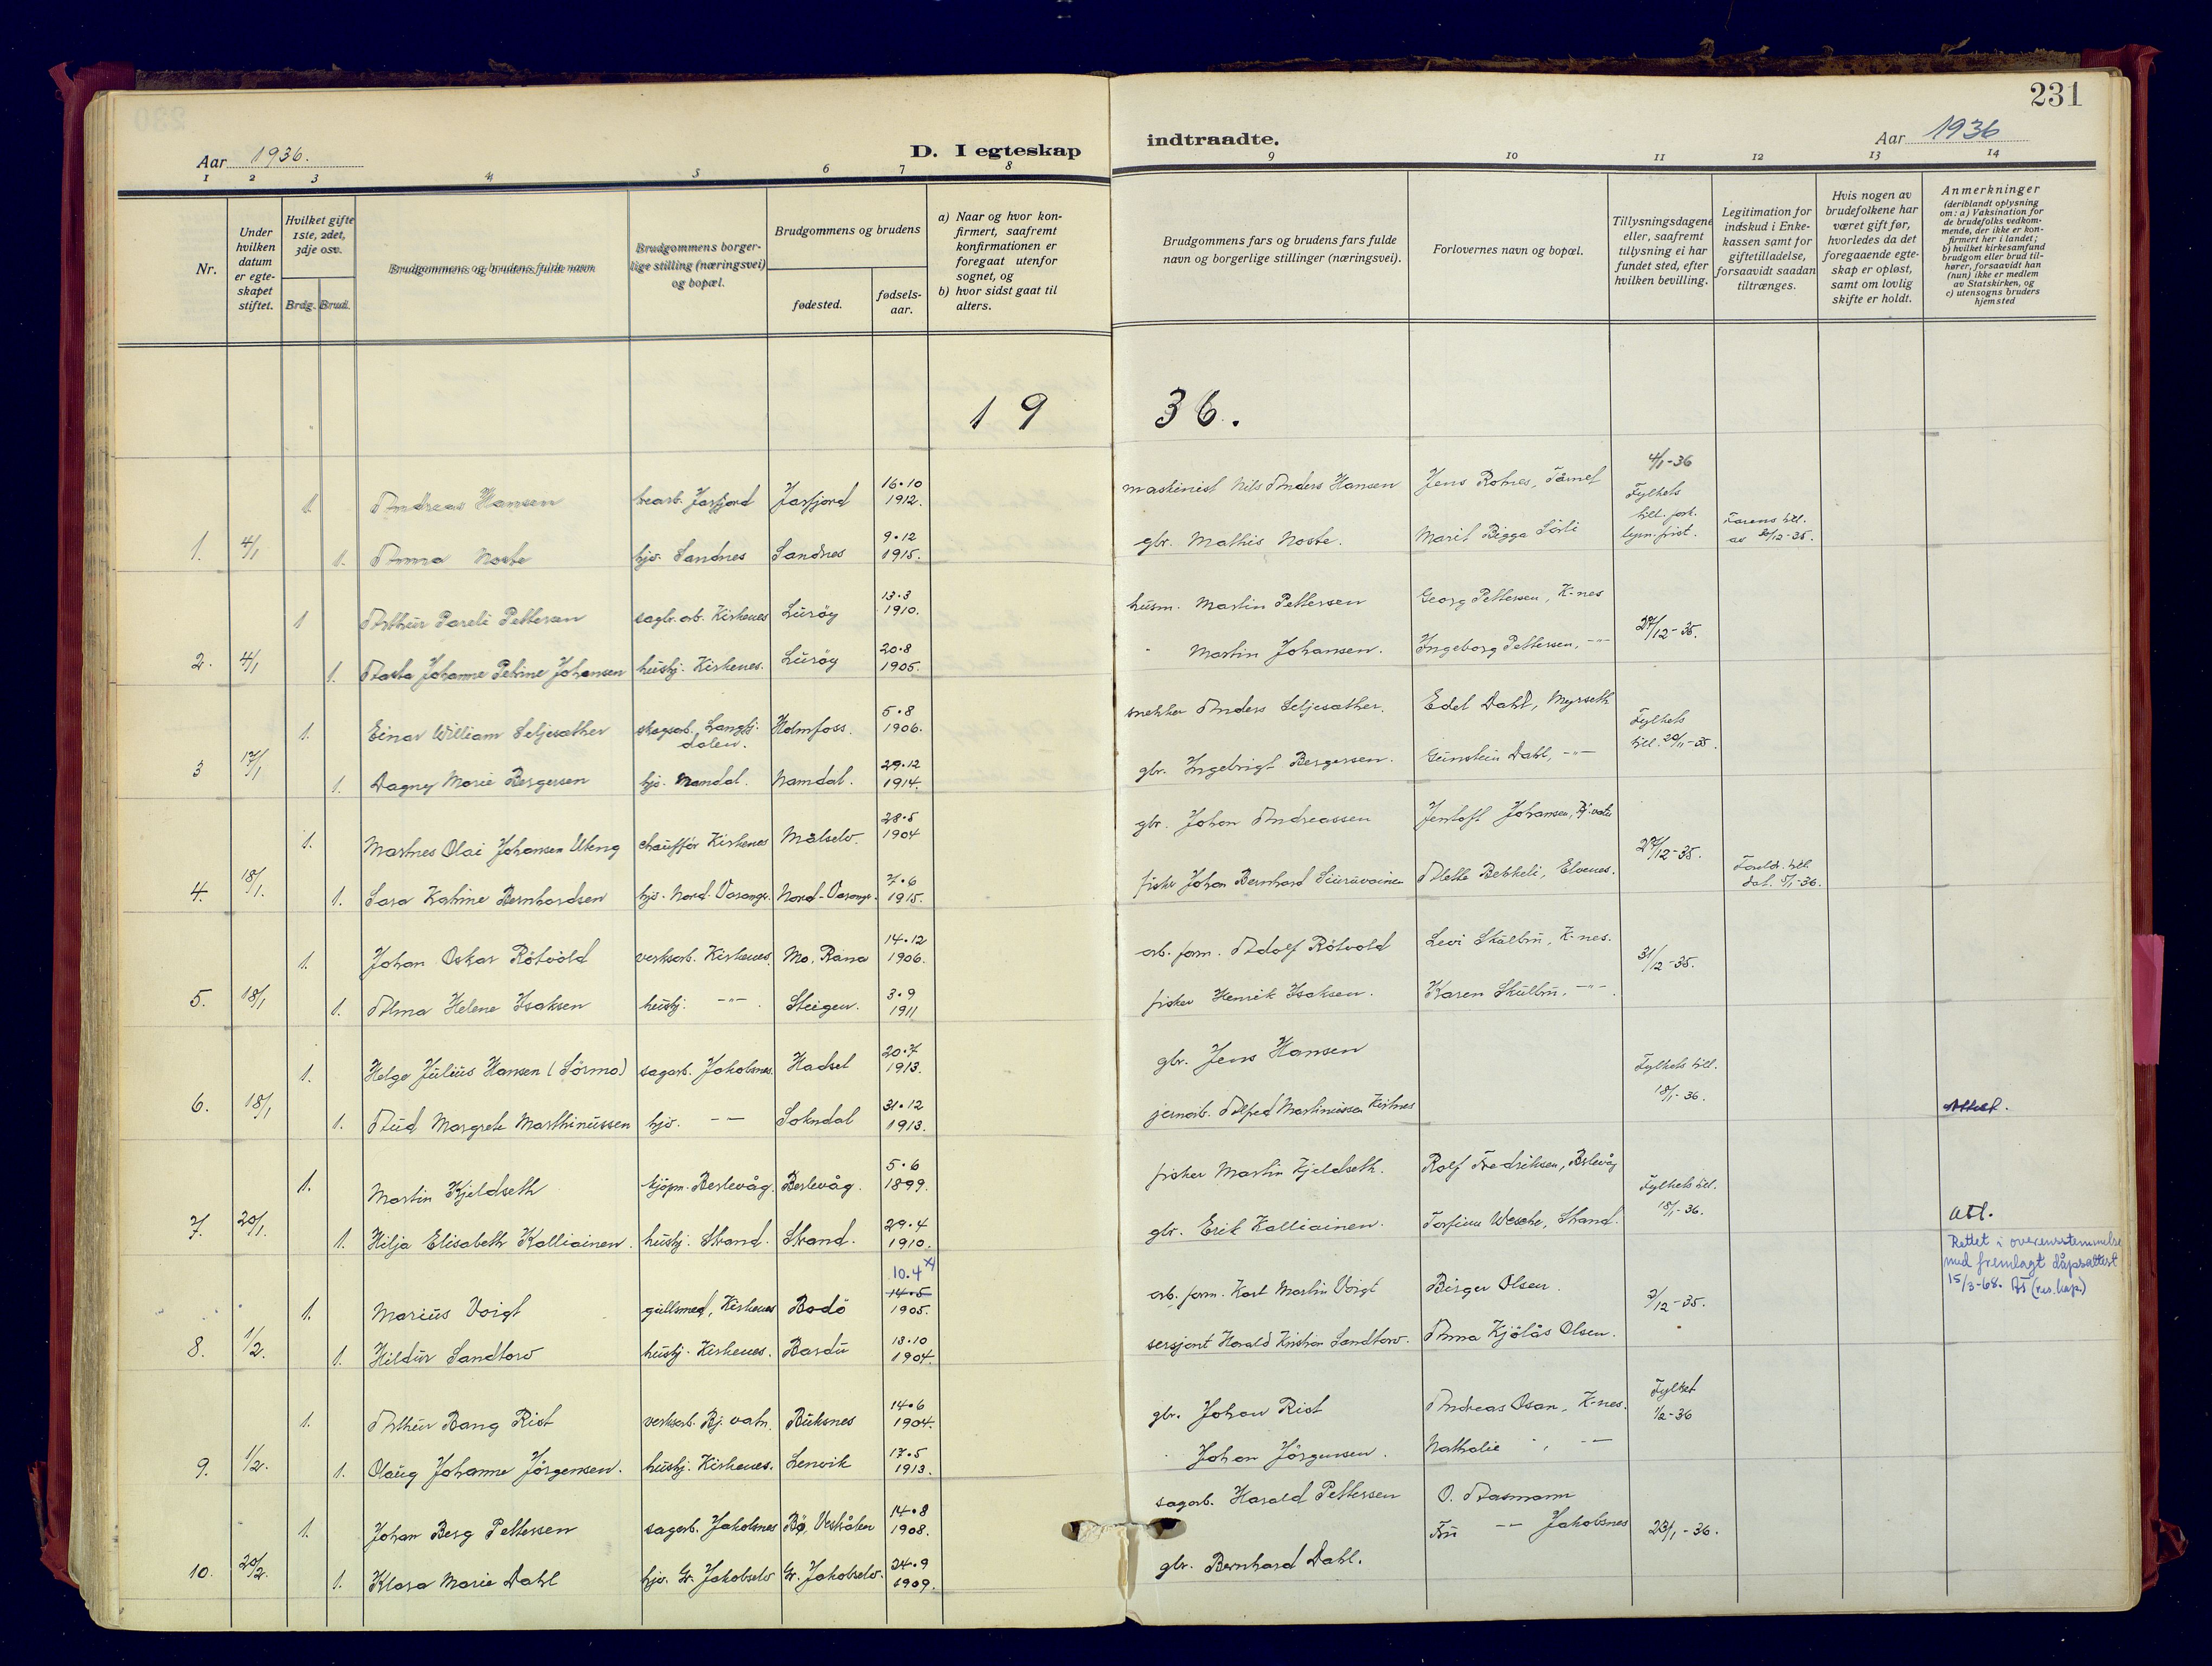 231
Aar 1936.
D. I egteskap
indtraadte.
Aar 1936
1 2 3 4 5 6 7 8 9 10 11 12 13 14
Nr.
Under hvilken datum er egteskapet stiftet.
Hvilket gifte 1ste, 2det, 3dje osv.
Brdg. Brud.
Brudgommens og brudens fulde navn
Brudgommens borgerlige stilling (næringsvei) og bopæl.
Brudgommens og brudens
fødested.
fødselsaar.
a) Naar og hvor konfirmert, saafremt konfirmationen er foregaat utenfor sognet, og
b) hvor sidst gaat til alters.
Brudgommens fars og brudens fars fulde navn og borgerlige stillinger (næringsvei).
Forlovernes navn og bopæl.
Tillysningsdagene eller, saafremt tillysning ei har fundet sted, efter hvilken bevilling.
Legitimation for indskud i Enkekassen samt for giftetilladelse, forsaavidt saadan tiltrænges.
Hvis nogen av brudefolkene har været gift før, hvorledes da det foregaaende egteskap er opløst, samt om lovlig skifte er holdt.
Anmerkninger (deriblandt oplysning om: a) Vaksination for de brudefolks vedkommende, der ikke er konfirmert her i landet; b) hvilket kirkesamfund brudgom eller brud tilhører, forsaavidt han (hun) ikke er medlem av Statskirken, og c) utensogns bruders hjemsted
19 36.
1. Andreas Hansen Jarfjord Jarfjord 16.10 1912. maskinist Nils Anders Hansen Jens Rotnes, Tårnet 4/1-36 Fylkets till.
1. 4/1 1. Anna Noste hjv. Sandnes Sandnes 9.12 1915. gbr. Mathis Noste. Marit Bigga Sörli av 20/12-35.
1 Arthur Pareli Pettersen sagbr. arb. Kirkenes Lurøy 13.3 1910. husm. Martin Pettersen Georg Pettersen, K-nes
2. 4/1 1. Johanne Petrine Johansen hushj. Kirkenes. Lurøy 20.8 1905. " Martin Johansen. Ingeborg Pettersen, -"- 27/12-35.
1. Einar William Seljesæther skogsarb. Langfj.dalen. Holmfoss. 5.8 1906. snekker Anders Seljesæther. Edel Dahl, Myrseth Fylkets
3 17/1 1. Dagny Marie Bergersen hjv. Namdal. Namdal. 29.12 1914. gbr. Ingebrigt Bergersen. Gunstein Dahl, -"- till. 20/11-35.
1. Martnes Olai Johansen Uteng chauffør Kirkenes Målselv. 28.5 1904 gbr. Johan Andreassen Jentoft Johansen,
4. 18/1. 1. Sara Katrine Bernhardsen hjv. Nord-Varanger. Nord-Varanger. 7.6 1915. fisker Johan Bernhard Alette Betkeli, Elvenes. 27/12-35. till. dat. 5/1-36.
1. Johan Oskar Rötvold verksarb. Kirkenes. Mo, Rana 14.12 1906. arb. form. Adolf Rötvold Levi Skålbu, K-nes. 31/12-35.
5. 18/1 1. Alma Helene Isaksen hushj. -"- Steigen. 3.9 1911 fisker Henrik Isaksen. Karen Skålbu, -"-
1. Helge Julius Hansen (Sörmo) sagarb. Jakobsnes. Hadsel 20.7 1913. gbr. Jens Hansen Fylkets till.
6. 18/1 1. Aud Margrete Marthinussen hjv. -"- Sokndal 31.12 1913. jernarb. Alfred Martinussen Kirknes 18/1-36. Attest.
1. Martin Kjeldseth kjøpm. Berlevåg. Berlevåg. 5.6 1899. fisker Martin Kjeldseth. Rolf Fredriksen, Berlevåg Fylkets till.
7. 20/1. 1. Hilja Elisabeth Kalliainen. hushj. Strand. Strand. 29.4 1910. gbr. Erik Kalliainen. Torfinn Wesche, Strand. 18/1-36. Att.
1. Marius Voigt gullsmed, Kirkenes Bodö 10.4 x) 14.5 1905. arb. form. Karl Martin Voigt Birger Olsen. 2/12-35.
Rettet i overensstemmelse med fremlagt dåpsattest 15/3-68. (res.kap.)
8. 1/2. 1. Hildur Sandtorv hushj. Kirkenes. Bardu 13.10 1904. sersjant Harald Kristian Sandtorv. Anna Kjölås Olsen.
1. Arthur Bang Rist verksarb. Bj. vatn. Buksnes 14.6 1904. gbr. Johan Rist Andreas Osan, K-nes. Fylket 1/2-36
9. 1/2. 1. Olaug Johanne Jörgensen. hushj. Kirkenes. Lenvik 17.5 1913. " Johan Jörgensen. Nathalie ", -"-
1. Johan Berg Pettersen sagarb. Jakobsnes Bø, Vestrålen 14.8 1908. sagarb. Harald Pettersen O. Aasmann
10. 20/2. 1. Klara Marie Dahl hjv. Gr. Jakobselv Gr. Jakobselv. 24.9 1909. gbr. Bernhard Dahl. Fru -"- Jakobsnes 23/1-36.